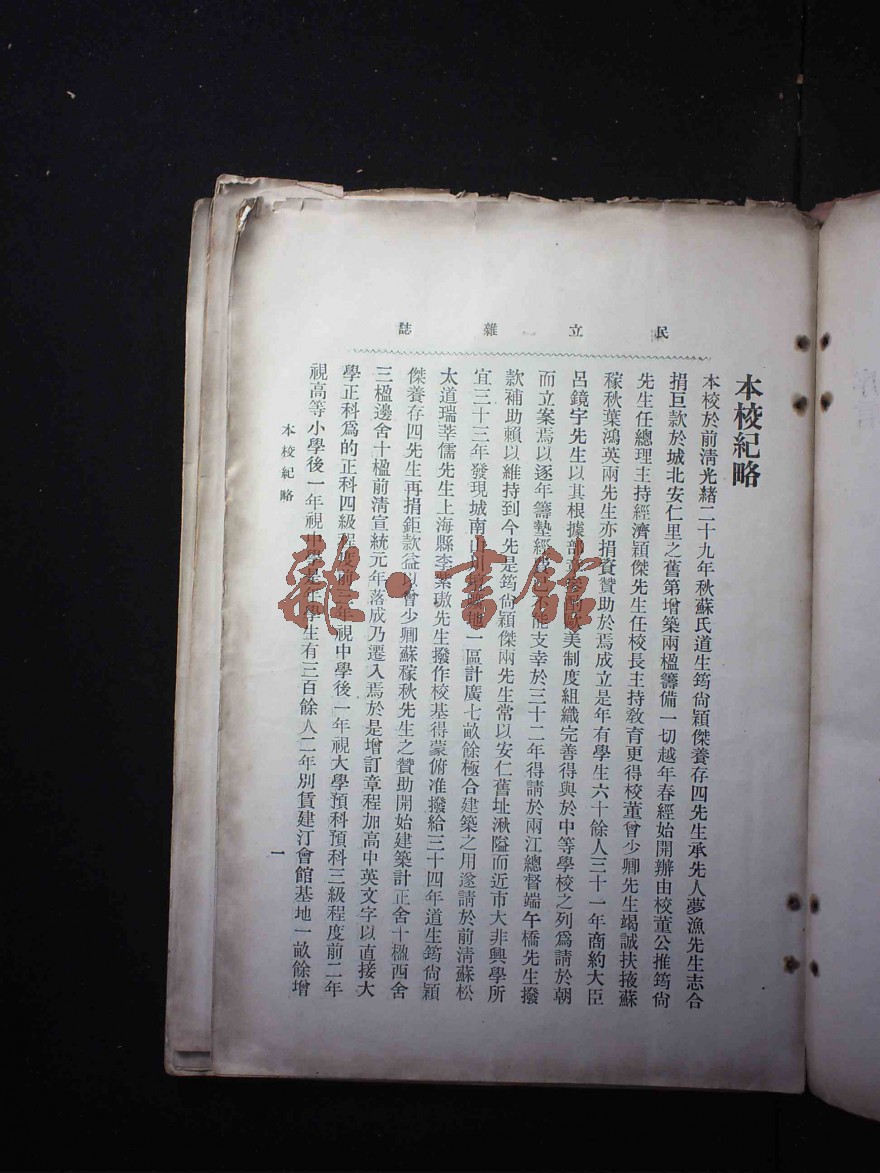 民立雜誌
本校紀略
本校於前清光緒二十九年秋蘇氏道生筠尙穎傑養存四先生承先人夢漁先生志合
捐巨款於城北安仁里之舊第增築兩楹籌備一切越年春經始開辦由校董公推筠尙
先生任總理主持經濟穎傑先生任校長主持敎育更得校董曾少卿先生竭誠扶掖蘇
稼秋葉鴻英兩先生亦捐資贊助於焉成立是年有學生六十餘人三十一年商約大臣
呂鏡宇先生以其根據部章參酌歐美制度組織完善得與於中等學校之列爲請於朝
而立案焉以逐年籌墊經費已不能支幸於三十二年得請於兩江總督端午橋先生撥
款補助賴以維持到今先是筠尙穎傑兩先生常以安仁舊址湫隘而近市大非興學所
宜三十三年發現城南地一區計廣七畝餘極合建築之用遂請於前清蘇松
太道瑞莘儒先生上海縣李紫璈先生撥作校基得蒙俯准撥給三十四年道生筠尙穎
傑養存四先生再捐鉅款益以曾少卿蘇稼秋先生之贊助開始建築計正舍十楹西舍
三楹邊舍十楹前清宣統元年落成乃遷入焉於是增訂章程加高中英文字以直接大
學正科爲的正科四級程度前三年視中學後一年視大學預科預科三級程度前二年
視高等小學後一年視中學是年學生有三百餘人二年別賃建汀會館基地一畝餘增
本校紀略
一
雜·書館